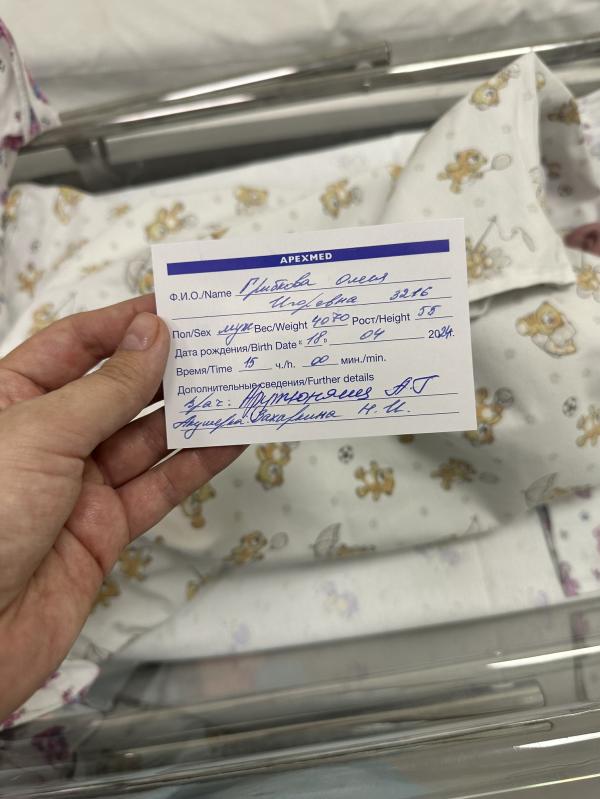 APEXMED
Ф.И.О./Name Грибкова Олеся
Игоревна 3216
Пол/Sex муж Вес/Weight 4070 Рост/Height 55
Дата рождения/Birth Date « 18 » 04 2024г.
Время/Time 15 ч./h. 00 мин./min.
Дополнительные сведения/Further details
Врач: Арутюнянц А.Г
Акушерка: Захаркина Н.И.